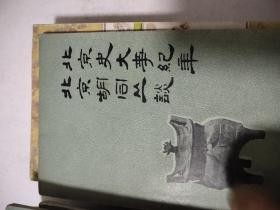 北京史大事紀年
北京胡同丛談